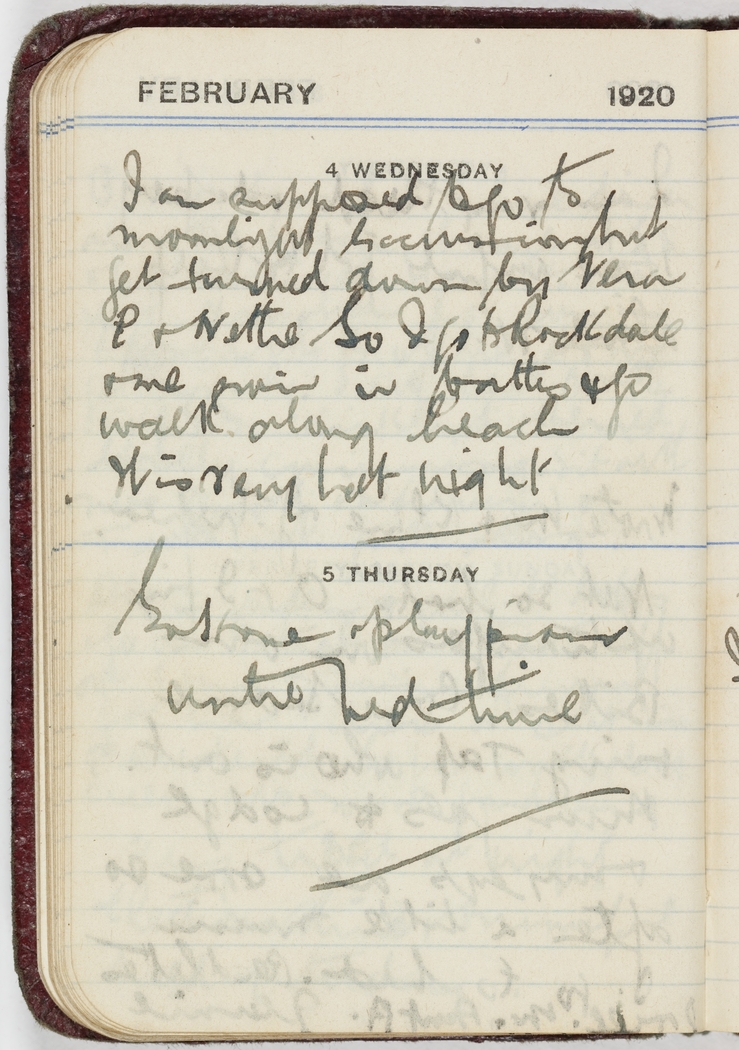 FEBRUARY 1920
4 WEDNESDAY
I am supposed to go to
moonlight excursion but
get turned down by Vera
P & Nettie So I go to Rockdale
& me in & go
walk along beach
It is very hot night
5 THURSDAY
Go home & play piano
until bed time